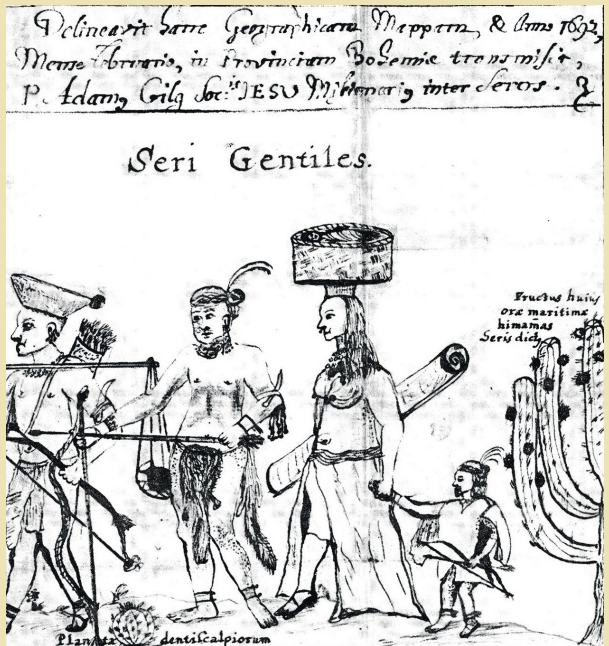 Delineavit hanc Geographicam Mappam, & Anno 1692,
Mense Februario, in Provinciam Bohemiæ transmisit,
P. Adamus Gilg Soc.is JESU Missionariq inter Seros.
Seri Gentiles.
Fructus huius
oræ maritimæ
himamas
Seris dict,
Planta dentiscalpiorum